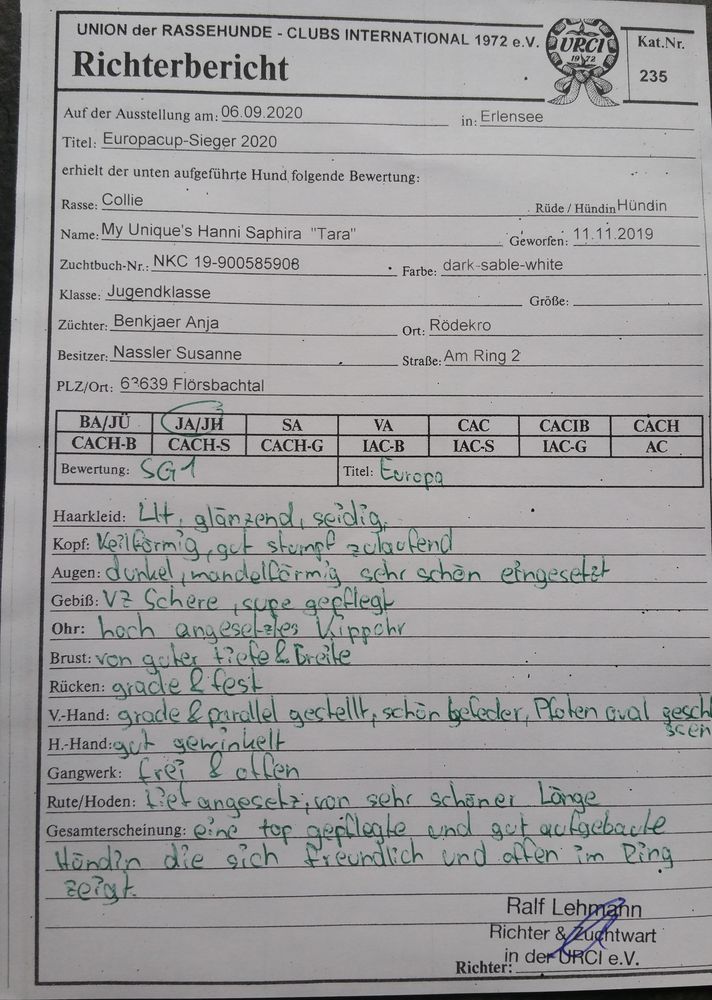 UNION der RASSEHUNDE - CLUBS INTERNATIONAL 1972 e.V.
URCI
1972
Kat.Nr.
235
Richterbericht
Auf der Ausstellung am: 06.09.2020 in: Erlensee
Titel: Europacup-Sieger 2020
erhielt der unten aufgeführte Hund folgende Bewertung:
Rasse: Collie Rüde / Hündin Hündin
Name: My Unique's Hanni Saphira "Tara" Geworfen: 11.11.2019
Zuchtbuch-Nr.: NKC 19-900585908 Farbe: dark-sable-white
Klasse: Jugendklasse Größe:
Züchter: Benkjaer Anja Ort: Rödekro
Besitzer: Nassler Susanne Straße: Am Ring 2
PLZ/Ort: 63639 Flörsbachtal
BA/JÜ JA/JH SA VA CAC CACIB CACH
CACH-B CACH-S CACH-G IAC-B IAC-S IAC-G AC
Bewertung: SG1 Titel: Europa
Haarkleid: glänzend, seidig,
Kopf: Keilförmig, gut stumpf zulaufend
Augen: dunkel, mandelförmig sehr schön eingesetzt
Gebiß: VZ Schere, supe gepflegt
Ohr: hoch angesetztes Kippohr
Brust: von guter Tiefe & Breite
Rücken: grade & fest
V.-Hand: grade & parallel gestellt, schön befeder, Pfoten oval gesch
H.-Hand: gut gewinkelt
Gangwerk: frei & offen
Rute/Hoden: tief angesetz, von sehr schöner Länge
Gesamterscheinung: eine top gepflegte und gut aufgebaute
Hündin die sich freundlich und offen im Ring
zeigt.
Ralf Lehmann
Richter & Zuchtwart
in der URCI e.V.
Richter: